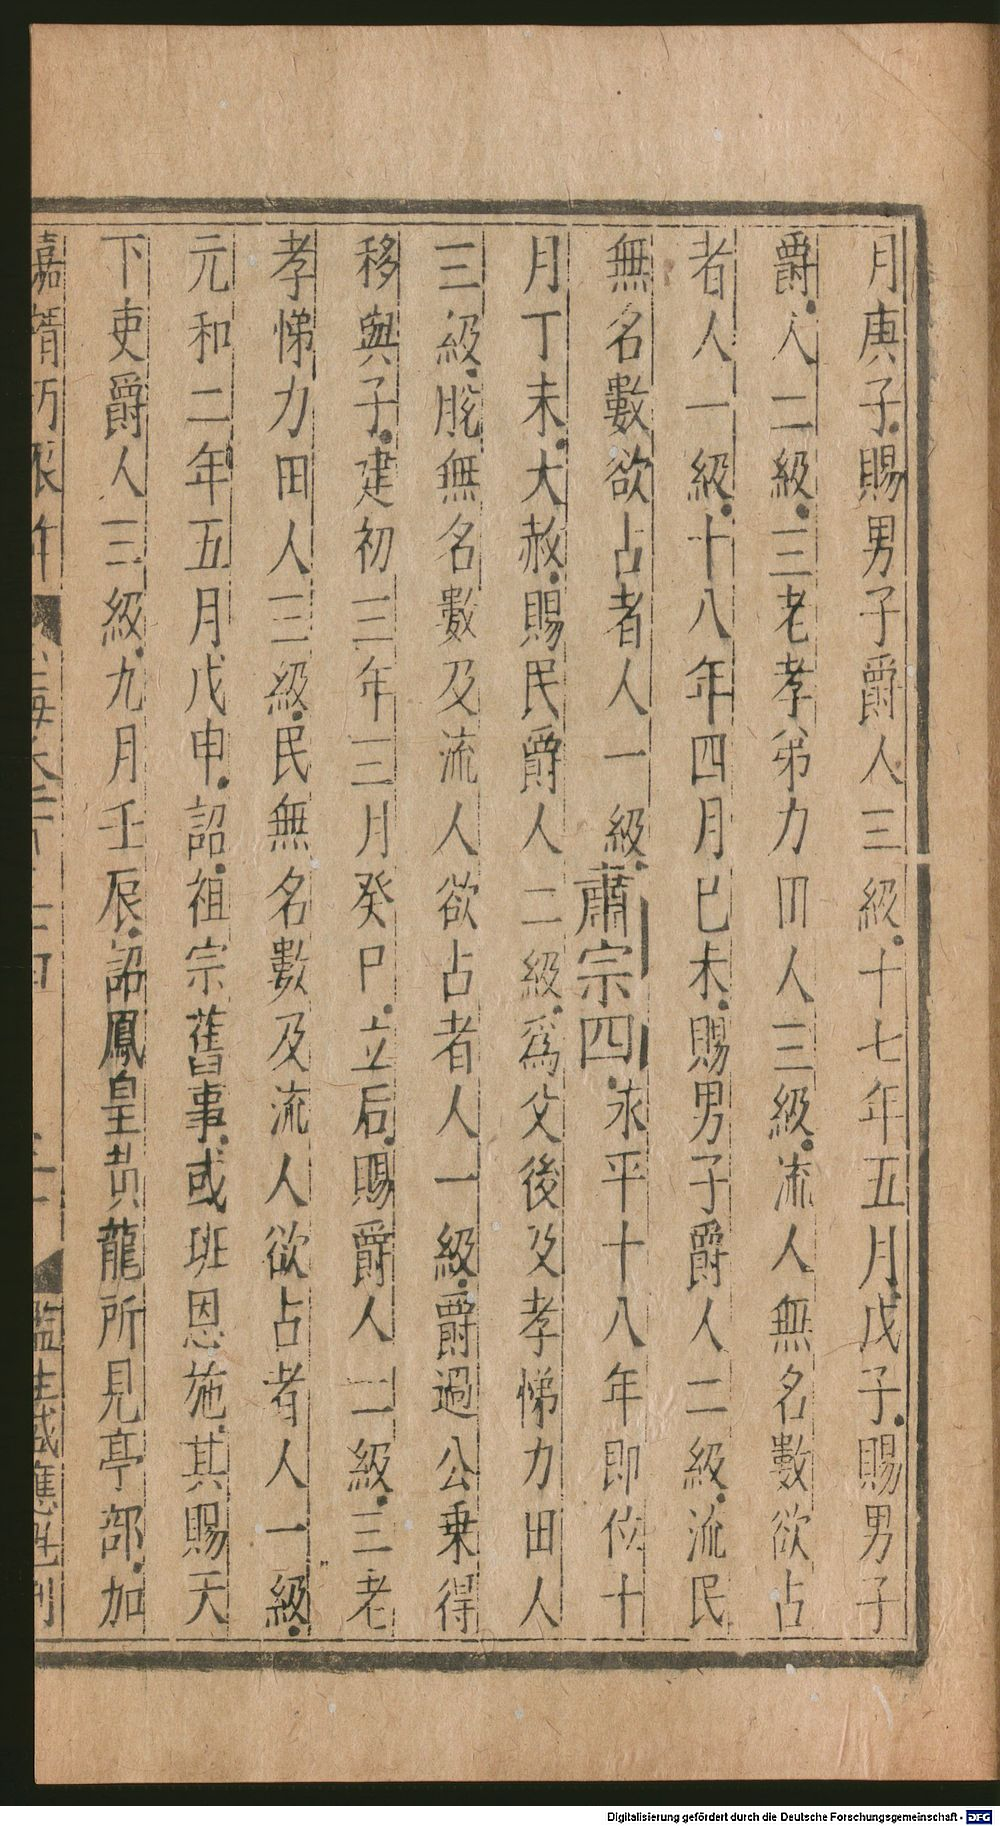 月庚子賜男子爵人三級十七年五月戊子賜男子
爵人二級三老孝弟力田人三級流人無名數欲占
者人一級十八年四月己未賜男子爵人二級流民
無名數欲占者人一級肅宗四永平十八年即位十
月丁未大赦賜民爵人二級爲父後及孝悌力田人
三級脫無名數及流人欲占者人一級爵過公乗得
移與子建初三年三月癸巳立后賜爵人二級三老
孝悌力田人三級民無名數及流人欲占者人一級
元和二年五月戊申詔祖宗舊事或班恩施其賜天
下吏爵人三級九月壬辰詔鳳皇黃龍所見亭部加
嘉靖 監生 應 刊
Digitalisierung gefördert durch die Deutsche Forschungsgemeinschaft - DFG